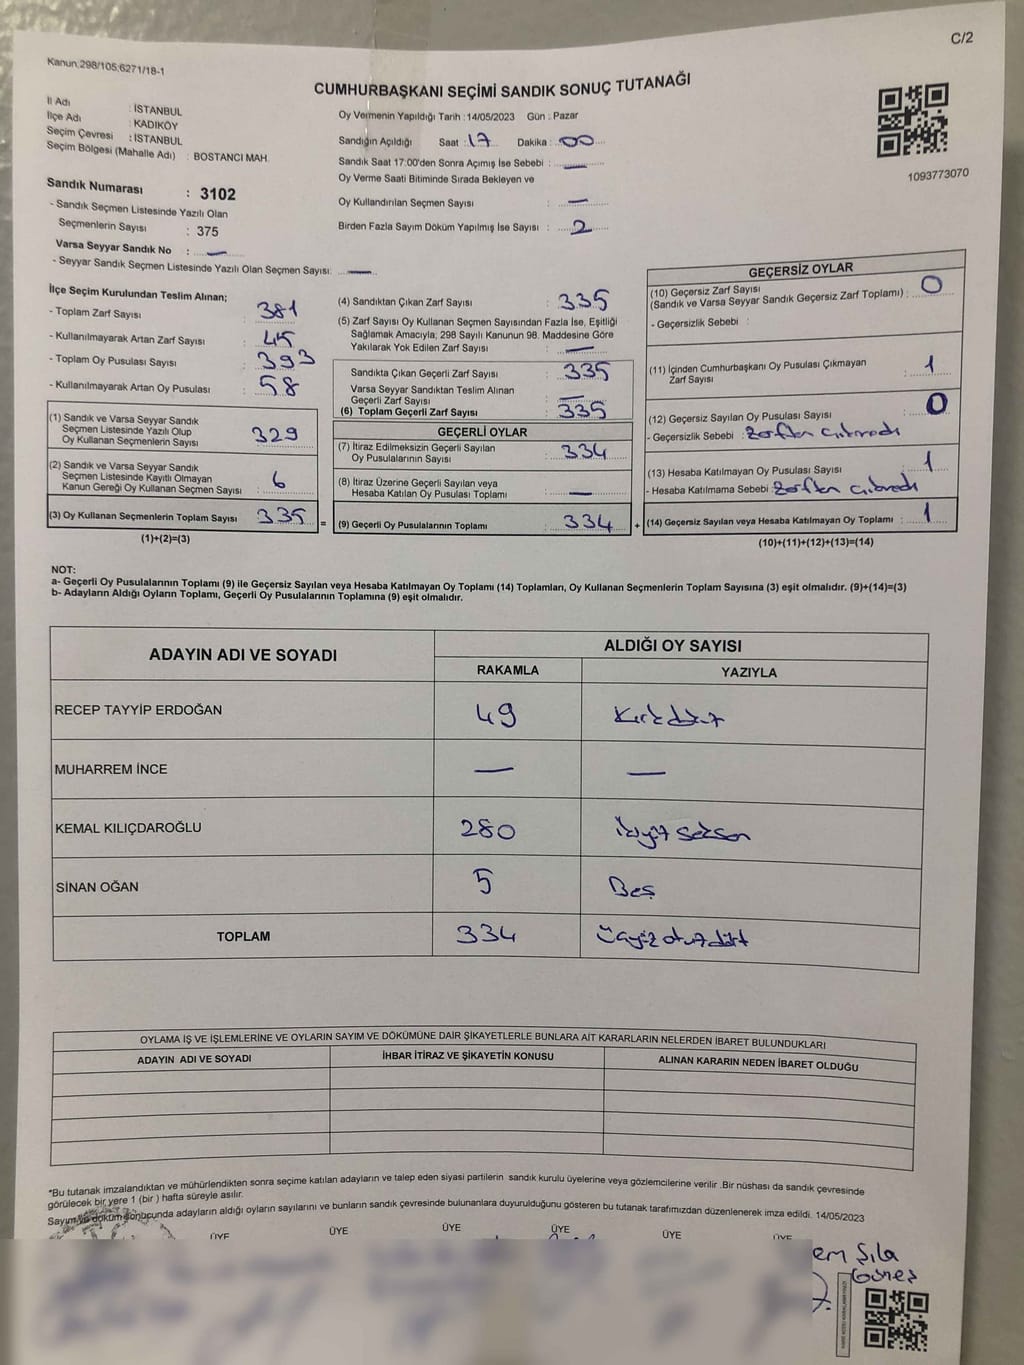 C/2
Kanun:298/105;6271/18-1
CUMHURBAŞKANI SEÇİMİ SANDIK SONUÇ TUTANAĞI
İl Adı : İSTANBUL
İlçe Adı : KADIKÖY
Seçim Çevresi : İSTANBUL
Seçim Bölgesi (Mahalle Adı) : BOSTANCI MAH.
Oy Vermenin Yapıldığı Tarih : 14/05/2023 Gün : Pazar
Sandığın Açıldığı Saat : 17 Dakika : 00
Sandık Saat 17:00'den Sonra Açımış İse Sebebi : —
Oy Verme Saati Bitiminde Sırada Bekleyen ve
Oy Kullandırılan Seçmen Sayısı : —
Birden Fazla Sayım Döküm Yapılmış İse Sayısı : 2
1093773070
Sandık Numarası : 3102
- Sandık Seçmen Listesinde Yazılı Olan
Seçmenlerin Sayısı : 375
Varsa Seyyar Sandık No : —
- Seyyar Sandık Seçmen Listesinde Yazılı Olan Seçmen Sayısı: —
İlçe Seçim Kurulundan Teslim Alınan;
- Toplam Zarf Sayısı : 381
- Kullanılmayarak Artan Zarf Sayısı : 45
- Toplam Oy Pusulası Sayısı : 393
- Kullanılmayarak Artan Oy Pusulası : 58
(1) Sandık ve Varsa Seyyar Sandık
Seçmen Listesinde Yazılı Olup
Oy Kullanan Seçmenlerin Sayısı 329
(2) Sandık ve Varsa Seyyar Sandık
Seçmen Listesinde Kayıtlı Olmayan
Kanun Gereği Oy Kullanan Seçmen Sayısı 6
(3) Oy Kullanan Seçmenlerin Toplam Sayısı 335
(1)+(2)=(3)
=
(4) Sandıktan Çıkan Zarf Sayısı : 335
(5) Zarf Sayısı Oy Kullanan Seçmen Sayısından Fazla İse, Eşitliği
Sağlamak Amacıyla; 298 Sayılı Kanunun 98. Maddesine Göre
Yakılarak Yok Edilen Zarf Sayısı —
Sandıkta Çıkan Geçerli Zarf Sayısı 335
Varsa Seyyar Sandıktan Teslim Alınan
Geçerli Zarf Sayısı —
(6) Toplam Geçerli Zarf Sayısı 335
GEÇERLİ OYLAR
(7) İtiraz Edilmeksizin Geçerli Sayılan
Oy Pusulalarının Sayısı 334
(8) İtiraz Üzerine Geçerli Sayılan veya
Hesaba Katılan Oy Pusulası Toplamı —
(9) Geçerli Oy Pusulalarının Toplamı 334
+
GEÇERSİZ OYLAR
(10) Geçersiz Zarf Sayısı
(Sandık ve Varsa Seyyar Sandık Geçersiz Zarf Toplamı) : 0
- Geçersizlik Sebebi :
(11) İçinden Cumhurbaşkanı Oy Pusulası Çıkmayan
Zarf Sayısı : 1
(12) Geçersiz Sayılan Oy Pusulası Sayısı : 0
- Geçersizlik Sebebi : Zarftan çıkmadı
(13) Hesaba Katılmayan Oy Pusulası Sayısı 1
- Hesaba Katılmama Sebebi : Zarftan çıkmadı
(14) Geçersiz Sayılan veya Hesaba Katılmayan Oy Toplamı : 1
(10)+(11)+(12)+(13)=(14)
NOT:
a- Geçerli Oy Pusulalarının Toplamı (9) ile Geçersiz Sayılan veya Hesaba Katılmayan Oy Toplamı (14) Toplamları, Oy Kullanan Seçmenlerin Toplam Sayısına (3) eşit olmalıdır. (9)+(14)=(3)
b- Adayların Aldığı Oyların Toplamı, Geçerli Oy Pusulalarının Toplamına (9) eşit olmalıdır.
ADAYIN ADI VE SOYADI
ALDIĞI OY SAYISI
RAKAMLA YAZIYLA
RECEP TAYYİP ERDOĞAN 49 Kırkdokuz
MUHARREM İNCE — —
KEMAL KILIÇDAROĞLU 280 İkiyüz seksen
SİNAN OĞAN 5 Beş
TOPLAM 334 Üçyüz otuz dört
OYLAMA İŞ VE İŞLEMLERİNE VE OYLARIN SAYIM VE DÖKÜMÜNE DAİR ŞİKAYETLERLE BUNLARA AİT KARARLARIN NELERDEN İBARET BULUNDUKLARI
ADAYIN ADI VE SOYADI İHBAR İTİRAZ VE ŞİKAYETİN KONUSU ALINAN KARARIN NEDEN İBARET OLDUĞU
*Bu tutanak imzalandıktan ve mühürlendikten sonra seçime katılan adayların ve talep eden siyasi partilerin sandık kurulu üyelerine veya gözlemcilerine verilir .Bir nüshası da sandık çevresinde
görülecek bir yere 1 (bir ) hafta süreyle asılır.
Sayım ve döküm sonucunda adayların aldığı oyların sayılarını ve bunların sandık çevresinde bulunanlara duyurulduğunu gösteren bu tutanak tarafımızdan düzenlenerek imza edildi. 14/05/2023
ÜYE ÜYE ÜYE ÜYE ÜYE ÜYE
em Şıla
Güneş